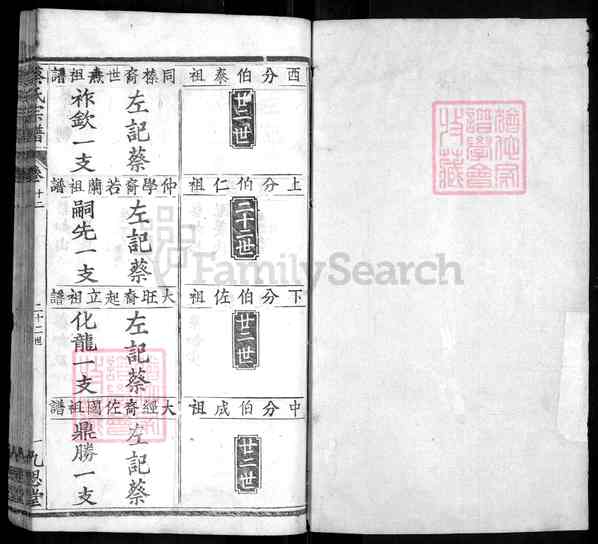 西分伯泰祖
廿二世
同榛裔世燕祖譜
左記蔡
祚欽一支
上分伯仁祖
二十二世
仲學裔若蘭祖譜
左記蔡
嗣先一支
下分伯佐祖
廿二世
大旺裔起立祖譜
左記蔡
化龍一支
中分伯成祖
廿二世
大經裔佐國祖譜
左記蔡
鼎勝一支
蔡氏宗譜
卷廿二
二十二世
一
九思堂
譜學會
收藏
FamilySearch